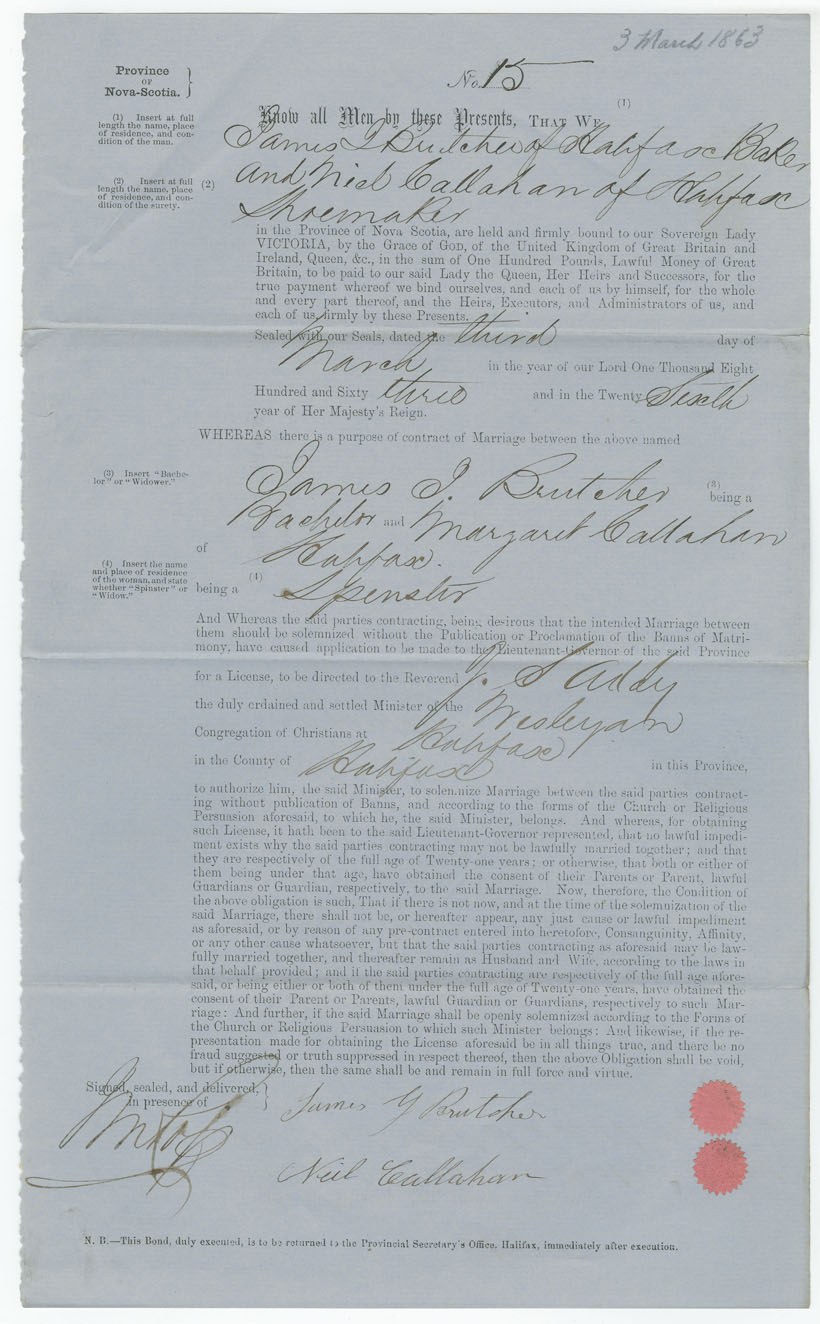 3 March 1863
Province
OF
Nova-Scotia.
No. 15
(1) Insert at full
length the name, place
of residence, and con-
dition of the man.
(1)
Know all Men by these Presents, THAT WE
James J Brutcher of Halifax Baker
(2) Insert at full
length the name, place
of residence, and con-
dition of the surety.
(2) and Niel Callahan of Halifax
Shoemaker
in the Province of Nova Scotia, are held and firmly bound to our Sovereign Lady
VICTORIA, by the Grace of GOD, of the United Kingdom of Great Britain and
Ireland, Queen, &c., in the sum of One Hundred Pounds, Lawful Money of Great
Britain, to be paid to our said Lady the Queen, Her Heirs and Successors, for the
true payment whereof we bind ourselves, and each of us by himself, for the whole
and every part thereof, and the Heirs, Executors, and Administrators of us, and
each of us, firmly by these Presents.
Sealed with our Seals, dated the third day of
March in the year of our Lord One Thousand Eight
Hundred and Sixty three and in the Twenty Sixth
year of Her Majesty's Reign.
WHEREAS there is a purpose of contract of Marriage between the above named
(3) Insert "Bache-
lor" or "Widower."
James J. Brutcher (3) being a
Bachelor and Margaret Callahan
of Halifax.
(4) Insert the name
and place of residence
of the woman, and state
whether "Spinster" or
"Widow."
being a (4) Spenster
And Whereas the said parties contracting, being desirous that the intended Marriage between
them should be solemnized without the Publication or Proclamation of the Banns of Matri-
mony, have caused application to be made to the Lieutenant-Governor of the said Province
for a License, to be directed to the Reverend J. S Addy
the duly ordained and settled Minister of the Wesleyan
Congregation of Christians at Halifax
in the County of Halifax in this Province,
to authorize him, the said Minister, to solemnize Marriage between the said parties contract-
ing without publication of Banns, and according to the forms of the Church or Religious
Persuasion aforesaid, to which he, the said Minister, belongs. And whereas, for obtaining
such License, it hath been to the said Lieutenant-Governor represented, that no lawful impedi-
ment exists why the said parties contracting may not be lawfully married together; and that
they are respectively of the full age of Twenty-one years; or otherwise, that both or either of
them being under that age, have obtained the consent of their Parents or Parent, lawful
Guardians or Guardian, respectively, to the said Marriage. Now, therefore, the Condition of
the above obligation is such, That if there is not now, and at the time of the solemnization of the
said Marriage, there shall not be, or hereafter appear, any just cause or lawful impediment
as aforesaid, or by reason of any pre-contract entered into heretofore, Consanguinity, Affinity,
or any other cause whatsoever, but that the said parties contracting as aforesaid may be law-
fully married together, and thereafter remain as Husband and Wife, according to the laws in
that behalf provided; and if the said parties contracting are respectively of the full age afore-
said, or being either or both of them under the full age of Twenty-one years, have obtained the
consent of their Parent or Parents, lawful Guardian or Guardians, respectively to such Mar-
riage: And further, if the said Marriage shall be openly solemnized according to the Forms of
the Church or Religious Persuasion to which such Minister belongs: And likewise, if the re-
presentation made for obtaining the License aforesaid be in all things true, and there be no
fraud suggested or truth suppressed in respect thereof, then the above Obligation shall be void,
but if otherwise, then the same shall be and remain in full force and virtue.
Signed, sealed, and delivered,
in presence of
James J Brutcher
Neil Callahan
N. B.—This Bond, duly executed, is to be returned to the Provincial Secretary's Office, Halifax, immediately after execution.